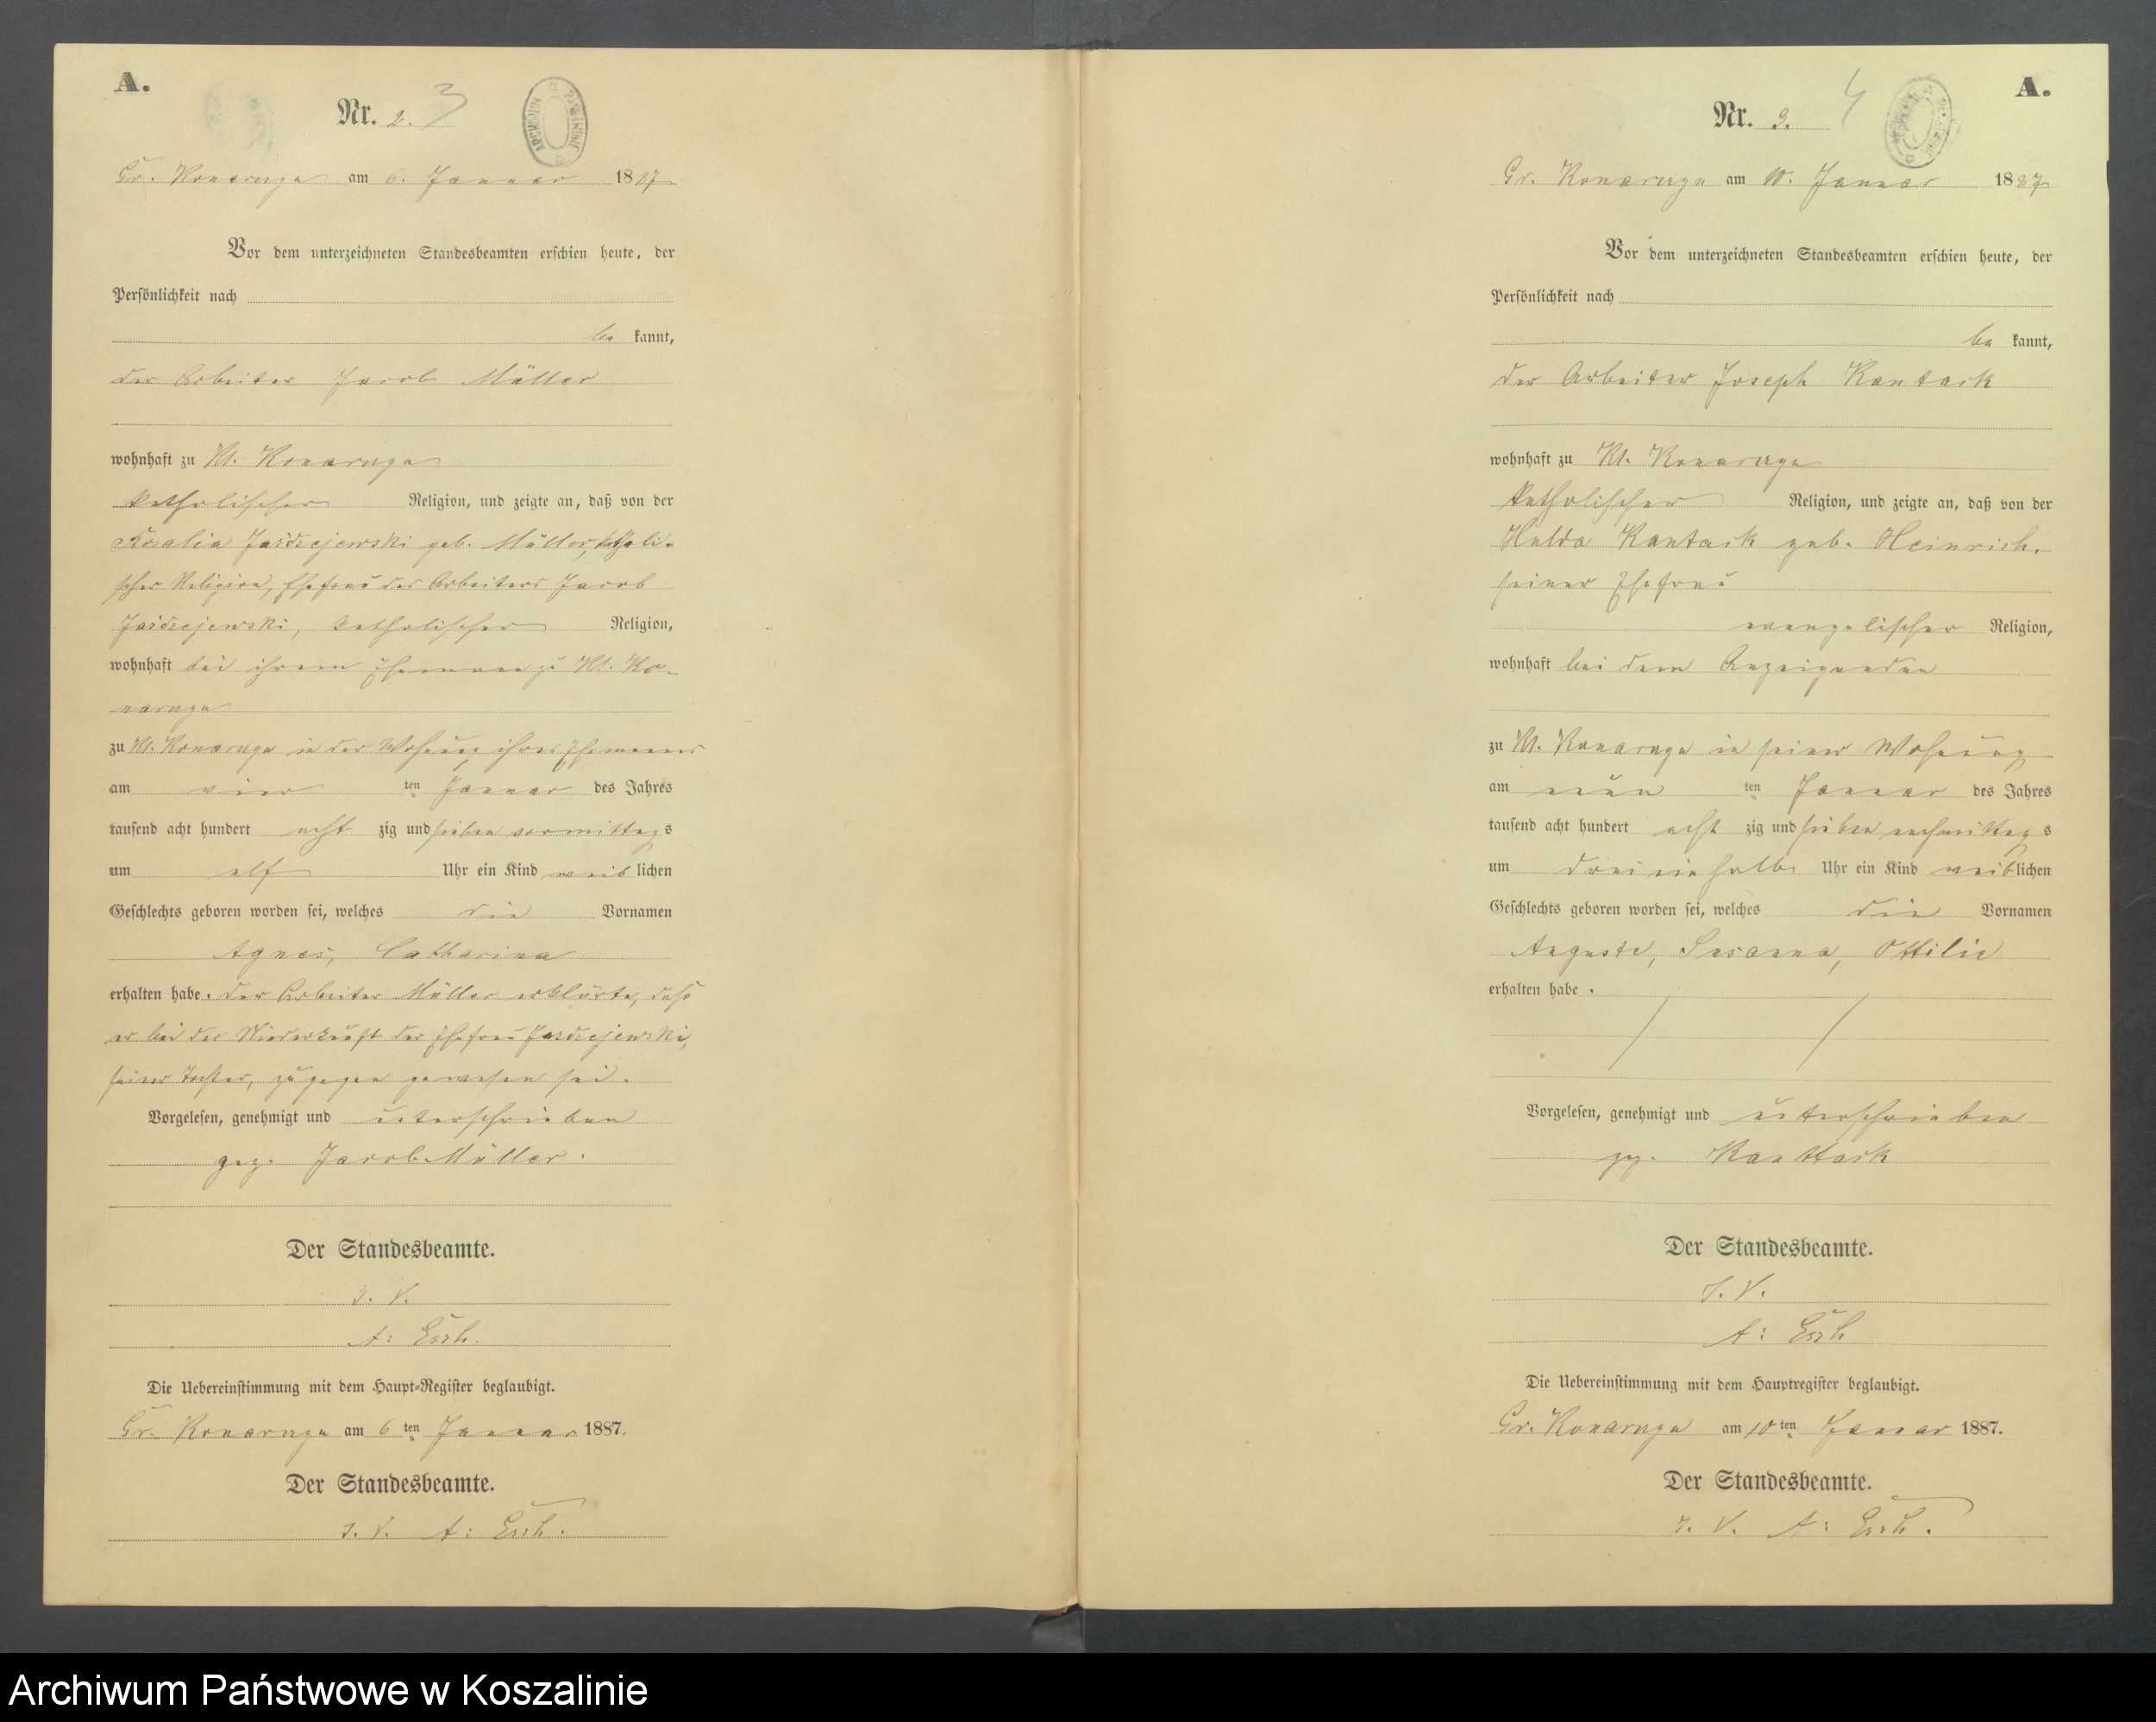 A.
Nr. 2. 3
Gr. Konarczyn am 6. Januar 1887
Vor dem unterzeichneten Standesbeamten erschien heute, der
Persönlichkeit nach
be kannt,
der Arbeiter Jacob Müller
wohnhaft zu Kl. Konarczyn
katholischer Religion, und zeigte an, daß von der
Rosalia Jasdzejewski geb. Müller, katholi-
scher Religion, Ehefrau des Arbeiters Jacob
Jasdzejewski, katholischer Religion,
wohnhaft bei ihrem Ehemann zu Kl. Ko-
narczyn
zu Kl. Konarczyn in der Wohnung ihres Ehemannes
am vier ten Januar des Jahres
tausend acht hundert acht zig und sieben vormittags
um elf Uhr ein Kind weib lichen
Geschlechts geboren worden sei, welches die Vornamen
Agnes, Catharina
erhalten habe. Der Arbeiter Müller erklärte, daß
er bei der Niederkunft der Ehefrau Jasdzejewski,
seiner Tochter, zugegen gewesen sei.
Vorgelesen, genehmigt und unterschrieben
gez. Jacob Müller.
Der Standesbeamte.
J. V.
A:
Die Uebereinstimmung mit dem Haupt-Register beglaubigt.
Gr. Konarczyn am 6 ten Januar 1887.
Der Standesbeamte.
J. V. A:
A.
Nr. 3. 4
Gr. Konarczyn am 10. Januar 1887
Vor dem unterzeichneten Standesbeamten erschien heute, der
Persönlichkeit nach
be kannt,
der Arbeiter Joseph Kantack
wohnhaft zu Kl. Konarczyn
katholischer Religion, und zeigte an, daß von der
Hulda Kantack geb. Heinrich,
seiner Ehefrau
evangelischer Religion,
wohnhaft bei dem Anzeigenden
zu Kl. Konarczyn in seiner Wohnung
am neun ten Januar des Jahres
tausend acht hundert acht zig und sieben nachmittags
um dreieinhalb Uhr ein Kind weiblichen
Geschlechts geboren worden sei, welches die Vornamen
Auguste, Susanna, Ottilie
erhalten habe.
Vorgelesen, genehmigt und unterschrieben
gez. Kanttack
Der Standesbeamte.
J. V.
A:
Die Uebereinstimmung mit dem Hauptregister beglaubigt.
Gr. Konarczyn am 10 ten Januar 1887.
Der Standesbeamte.
J. V. A:
Archiwum Państwowe w Koszalinie